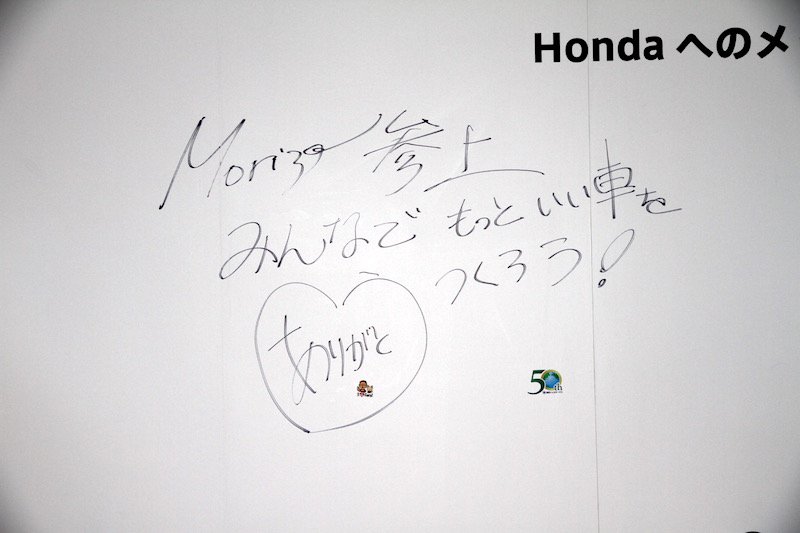 Honda へのメ
Morizo 参上
みんなで もっといい車を
つくろう!
ありがとう
50th